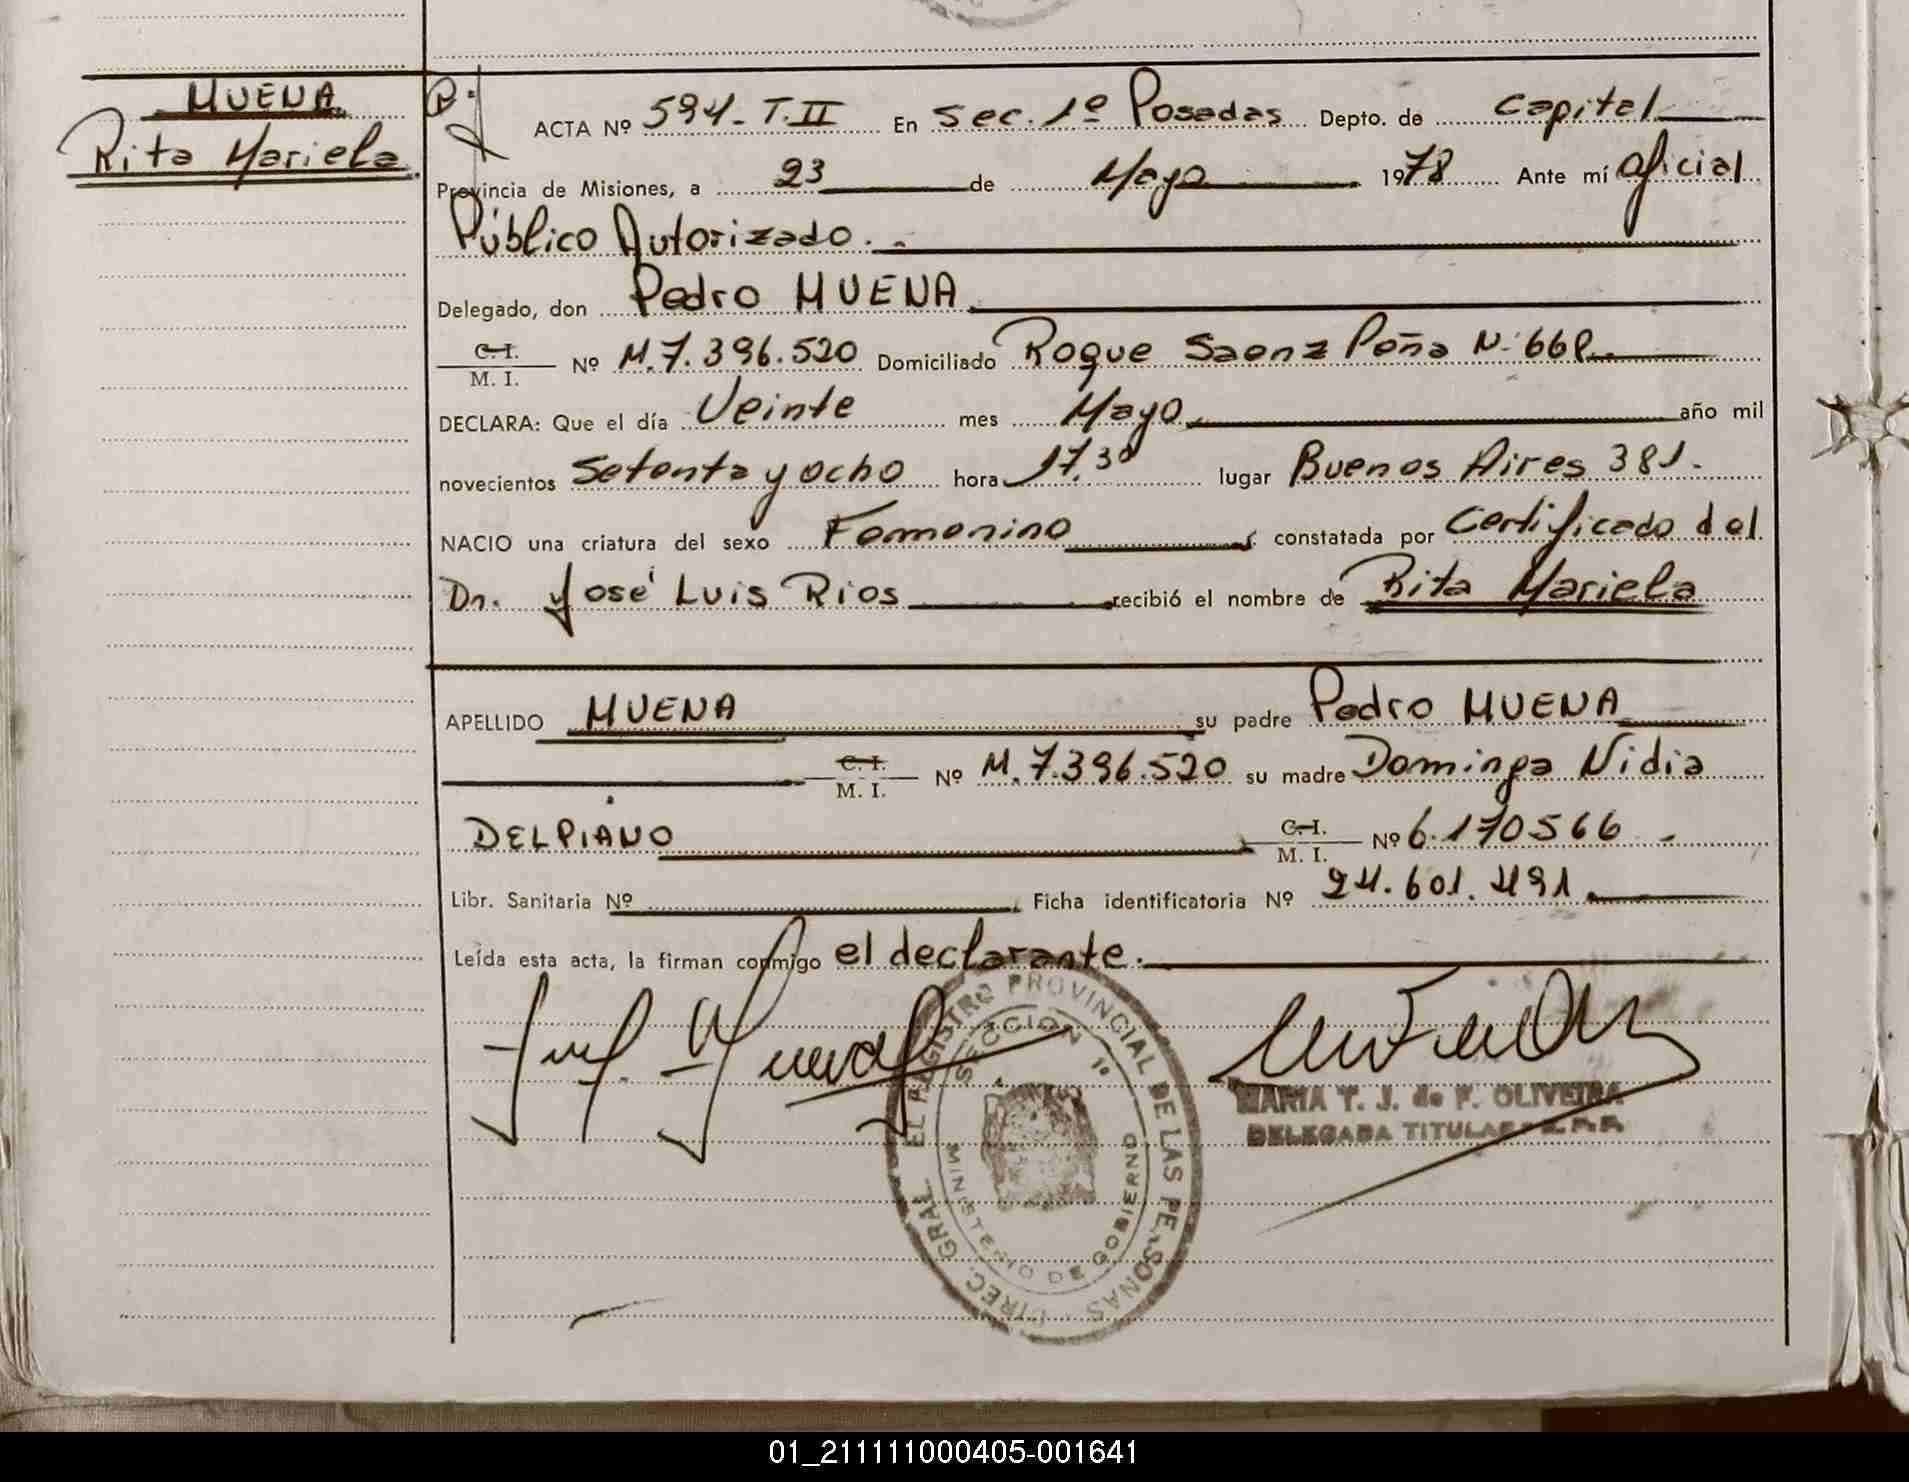 MUENA
Rita Mariela.
ACTA Nº 594-T.II En Sec. 1º Posadas Depto. de Capital
Provincia de Misiones, a 23 de Mayo 1978 Ante mí Oficial
Público Autorizado.-
Delegado, don Pedro MUENA
C. I. / M. I. Nº M.7.396.520 Domiciliado Roque Saenz Peña Nº 668
DECLARA: Que el día Veinte mes Mayo año mil
novecientos Setenta y ocho hora 17.30 lugar Buenos Aires 381.
NACIO una criatura del sexo Femenino constatada por Certificado del
Dr. José Luis Rios recibió el nombre de Rita Mariela
APELLIDO MUENA su padre Pedro MUENA
C. I. / M. I. Nº M.7.396.520 su madre Dominga Nidia
DELPIANO C. I. / M. I. Nº 6.170566.-
Libr. Sanitaria Nº Ficha identificatoria Nº 24.601.491.
Leída esta acta, la firman conmigo el declarante.
DIREC. GRAL. EL REGISTRO PROVINCIAL DE LAS PERSONAS
SECCION 1º
MINISTERIO DE GOBIERNO
MARIA T. J. de F. OLIVEIRA
DELEGADA TITULAR R.P.P.
01_211111000405-001641